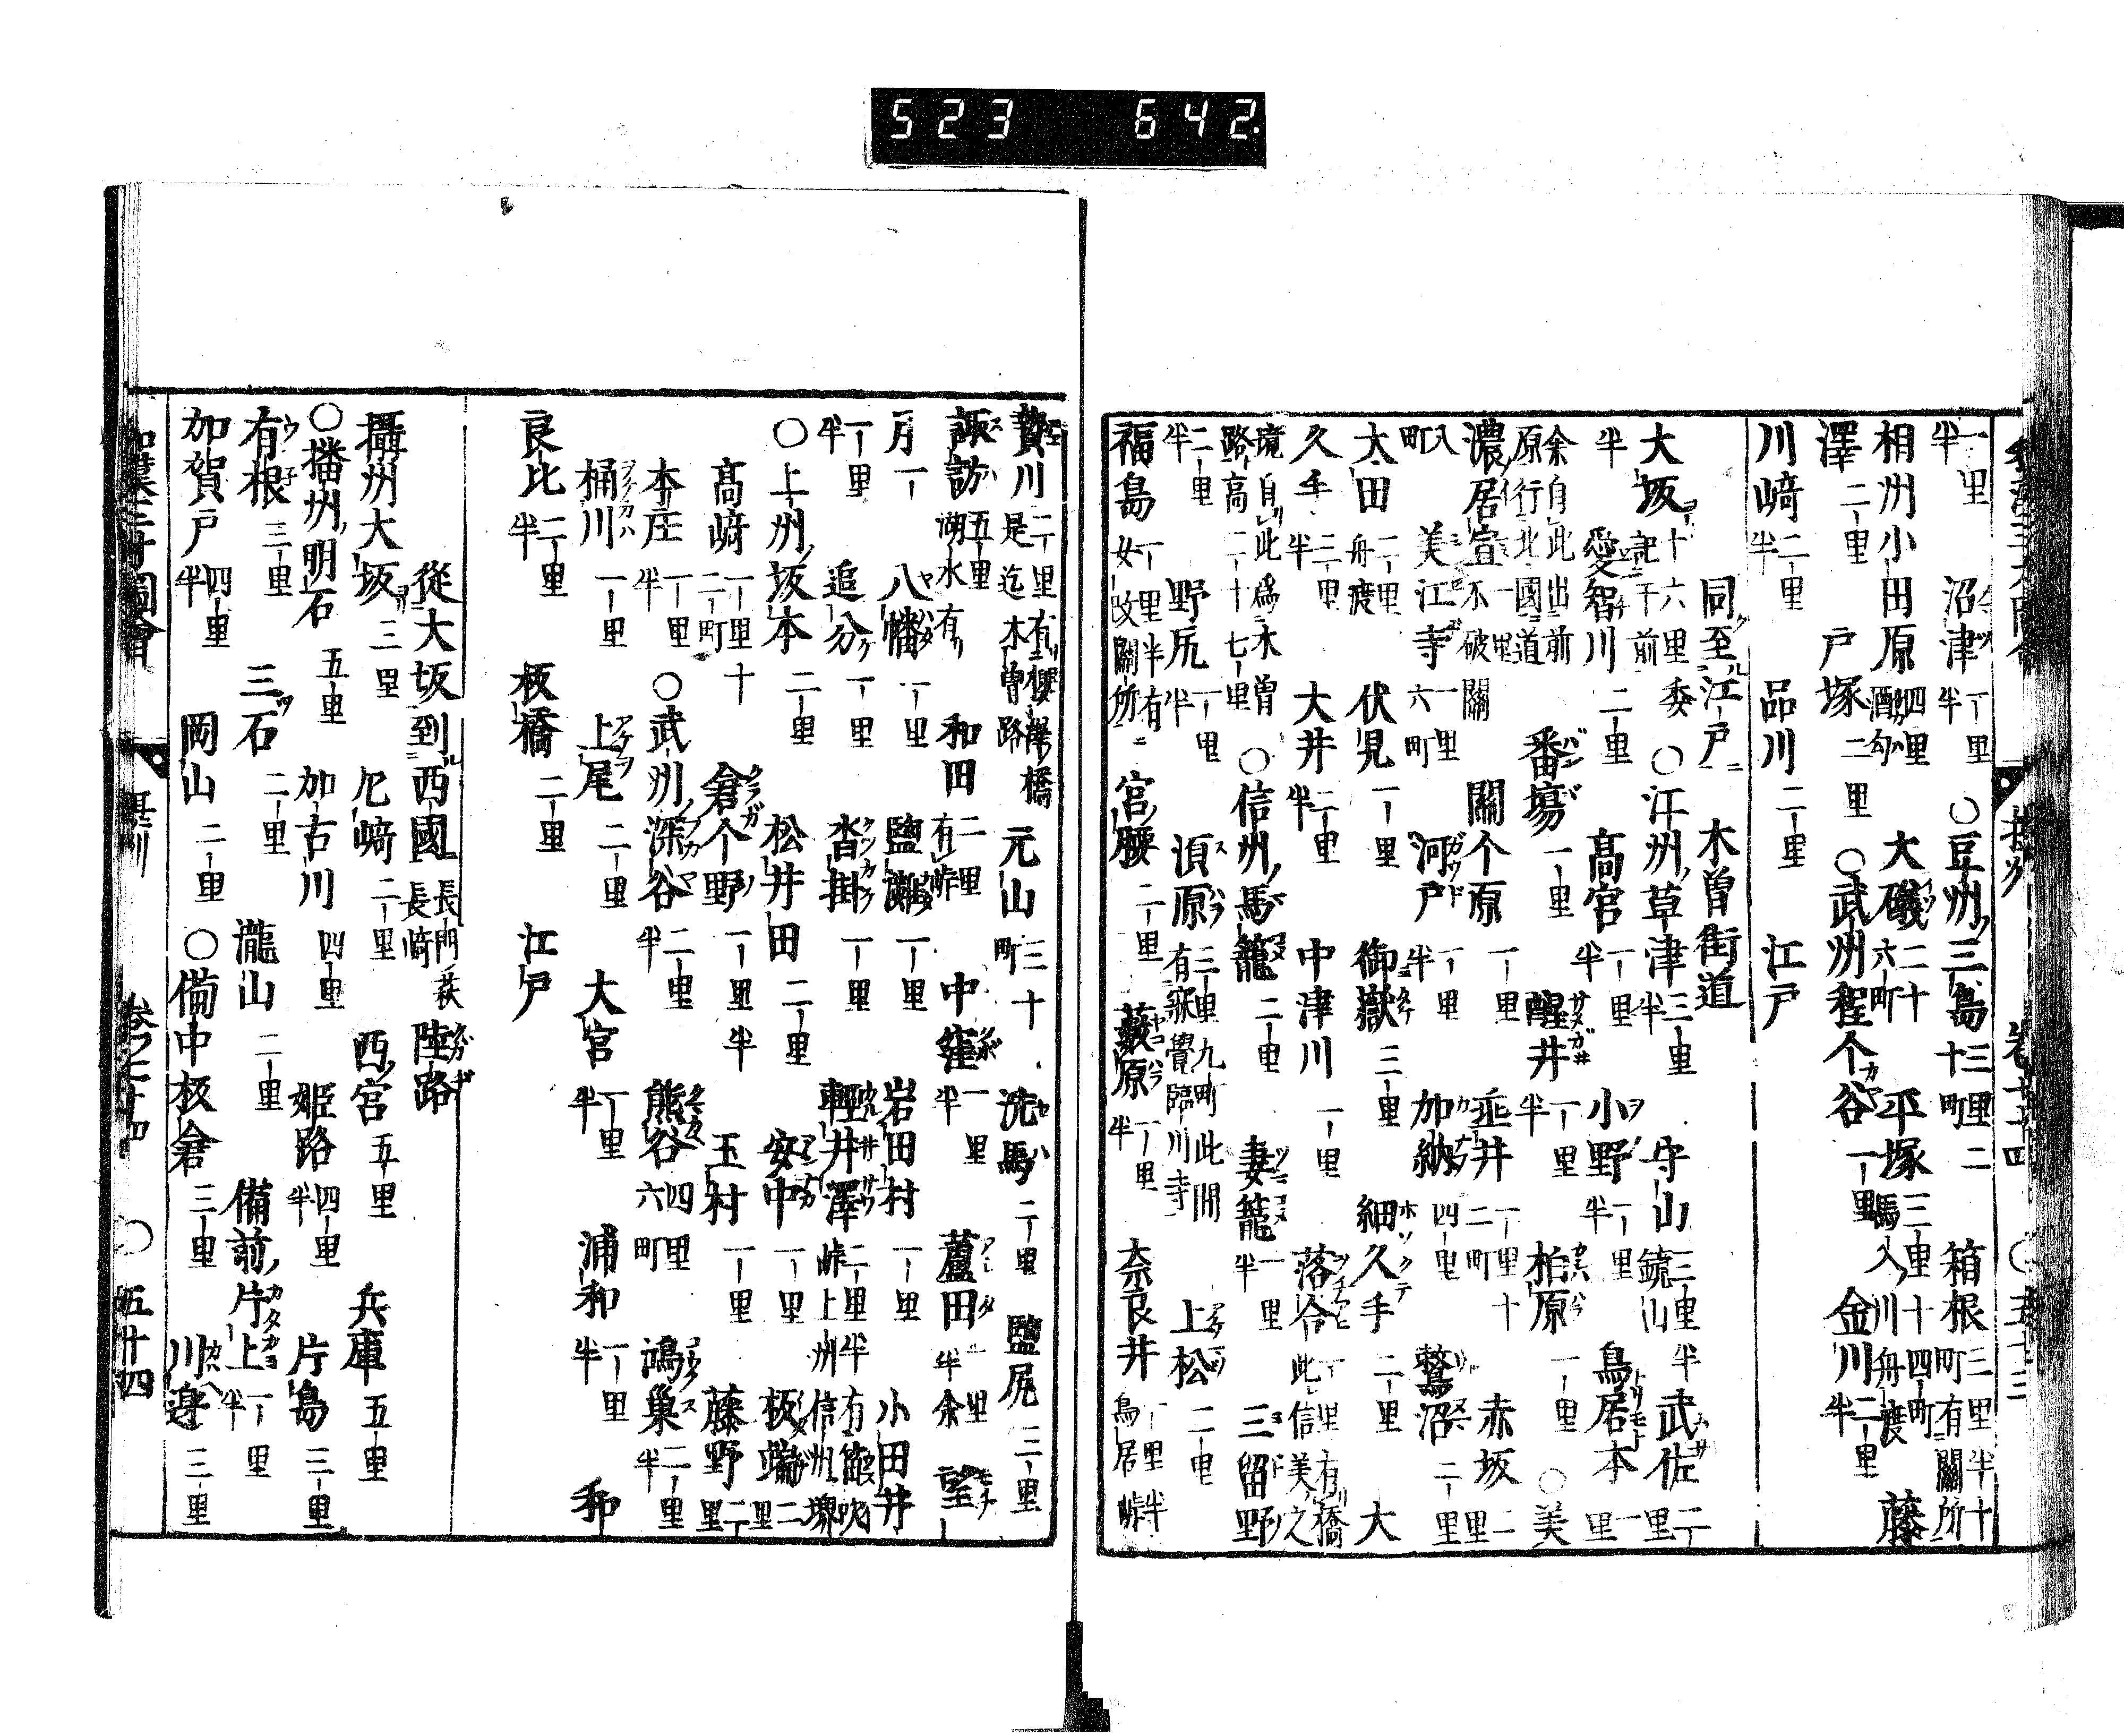 523 642
一里半 沼津 一里半 ○豆州三島 三里二十町 箱根 三里半十町有關所
相州小田原 四里酒匂 大磯 二十六町 平塚 三里十四町馬入川舟渡 藤
澤 二里 戸塚 二里 ○武州程个谷 一里 金川 二里半
川﨑 二里半 品川 二里 江戸
同至江戸 木曽街道
大坂 十六里委記于前 ○江州草津 三里半 守山 三里半鏡山 武佐 二里
半 愛智川 二里 髙宮 一里半 小野 一里半 鳥居本 一里
余自此出前原行北國道 番塲 一里 醒井 一里半 柏原 一里 ○美
濃居宣 一里不破關 關个原 一里 垂井 一里十二町 赤坂 二里
八町 美江寺 一里六町 河戸 一里半 加納 四里 鵞沼 二里
太田 二里舟渡 伏見 一里 御嶽 三里 細久手 二里 大
久手 二里半 大井 二里半 中津川 一里 落合 一里有橋此信美之
境自此爲木曽路髙二十七里 ○信州馬籠 二里 妻籠 一里半 三留野
二里半 野尻 一里半 湏原 三里九町此間有寐覺臨川寺 上松 二里
福島 一里半有女改關所 宮腰 二里 藪原 一里半 奈良井 一里半鳥居峠
贄川 二里有櫻澤橋是迄木曽路 元山 三十町 洗馬 二里 鹽尻 三里
諏訪 五里湖水有 和田 二里有峠 中窪 一里半 蘆田 一里半余 望
月 一 八幡 一里 鹽灘 一里 岩田村 一里 小田井
一里半 追分 一里 沓掛 一里 輕井澤 二里半有笛吹峠上州信州堺
○上州坂本 二里 松井田 二里 安中 一里 板端 二里
髙﨑 一里十二町 倉个野 一里半 玉村 一里 藤野 二里
本庄 一里半 ○武州深谷 二里半 熊谷 四里六町 鴻巢 二里半
桶川 一里 上尾 二里 大宮 一里半 浦和 一里半 和
良比 二里半 板橋 二里 江戸
從大坂到西國 長門萩長﨑 陸路
攝州大坂 三里 尼﨑 二里 西宮 五里 兵庫 五里
○播州明石 五里 加古川 四里 姫路 四里半 片島 三里
有根 三里 三石 二里 瀧山 二里 備前片上 一里半
加賀戸 四里半 岡山 二里 ○備中板倉 三里 川邉 三里
○ 五十四